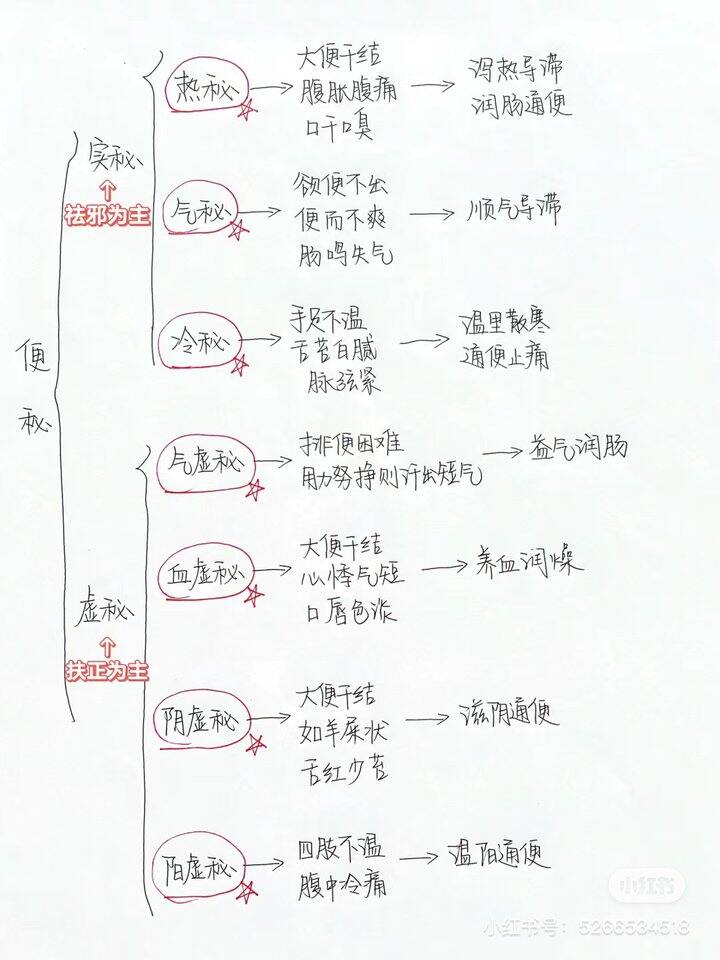 便秘
实秘
祛邪为主
热秘
大便干结
腹胀腹痛
口干口臭
泻热导滞
润肠通便
气秘
欲便不出
便而不爽
肠鸣失气
顺气导滞
冷秘
手足不温
舌苔白腻
脉弦紧
温里散寒
通便止痛
虚秘
扶正为主
气虚秘
排便困难
用力努挣则汗出短气
益气润肠
血虚秘
大便干结
心悸气短
口唇色淡
养血润燥
阴虚秘
大便干结
如羊屎状
舌红少苔
滋阴通便
阳虚秘
四肢不温
腹中冷痛
温阳通便
小红书
小红书号：5266534518